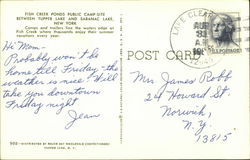 FISH CREEK PONDS PUBLIC CAMP SITE
BETWEEN TUPPER LAKE AND SARANAC LAKE,
NEW YORK
Camps and trailers line the waters edge at
Fish Creek where thousands enjoy their summer
vacations every year.
Hi Mom -
Probably won't be
home till Friday - the
weather is nice. Will
take you downtown
Friday night
Jean
POST CARD
LAKE CLEAR
Mrs James Robb
24 Howard St
Norwich,
N.Y.
13815